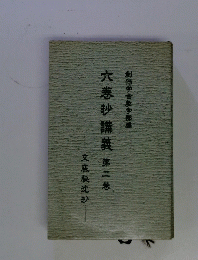 創価学会教学部編
六巻抄講義 第二巻
文底秘沈抄